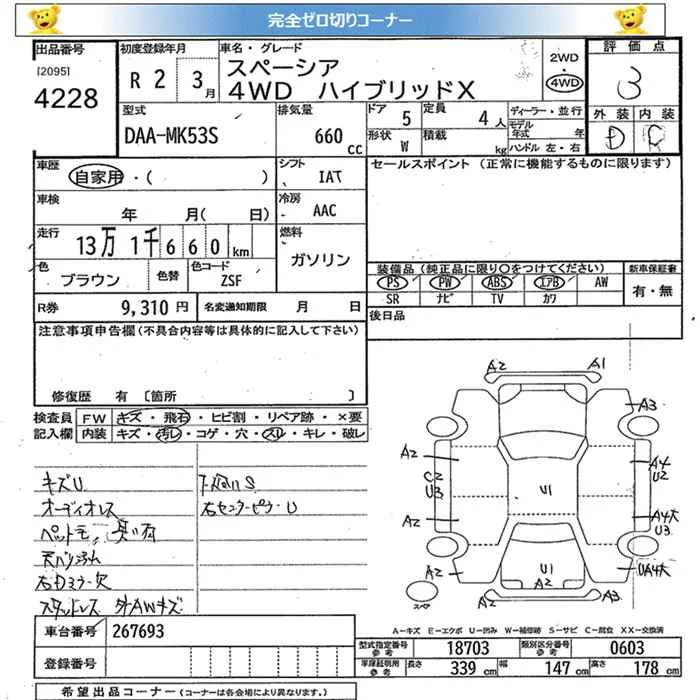 完全ゼロ切りコーナー
出品番号 初度登録年月 車名・グレード 2WD 評価点
[2095] R 2 3月 スペーシア ・ 3
4228 4WD ハイブリッドX 4WD
型式 排気量 ドア 5 定員 4人 ディーラー・並行 外装 内装
DAA-MK53S 660cc 形状 W 積載 kg モデル年式 年 D C
ハンドル 左・右
車歴 自家用・( ) シフト IAT セールスポイント (正常に機能するものに限ります)
車検 年 月( 日) 冷房 AAC
走行 13万1千660km 燃料 ガソリン
色 ブラウン 色替 色コード ZSF 装備品(純正品に限り○をつけてください) 新車保証書
PS PW ABS エアB AW 有・無
SR ナビ TV カワ
R券 9,310円 名変通知期限 月 日 後日品
注意事項申告欄(不具合内容等は具体的に記入して下さい)
修復歴 有 〔箇所 〕
検査員 FW キズ・飛石・ヒビ割・リペア跡・×要
記入欄 内装 キズ・汚レ・コゲ・穴・スレ・キレ・破レ
キズU 下廻りS
オーディオレス 右センターピラーU
ペットモ、臭い有
右ドミラー欠
スタットレス 外AWキズ
A2 A1
A3
A2 A4
C2 U2
U3 U1
A2 A4大
U3
A2 U1 UA4大
A2
A2 A3
スペア
A―キズ E―エクボ U―凹み W―補修跡 S―サビ C―腐食 XX―交換済
車台番号 267693 型式指定番号 参考 18703 類別区分番号 参考 0603
登録番号 車庫証明用 参考 長さ 339cm 幅 147cm 高さ 178cm
希望出品コーナー (コーナーは各会場により異なります。)